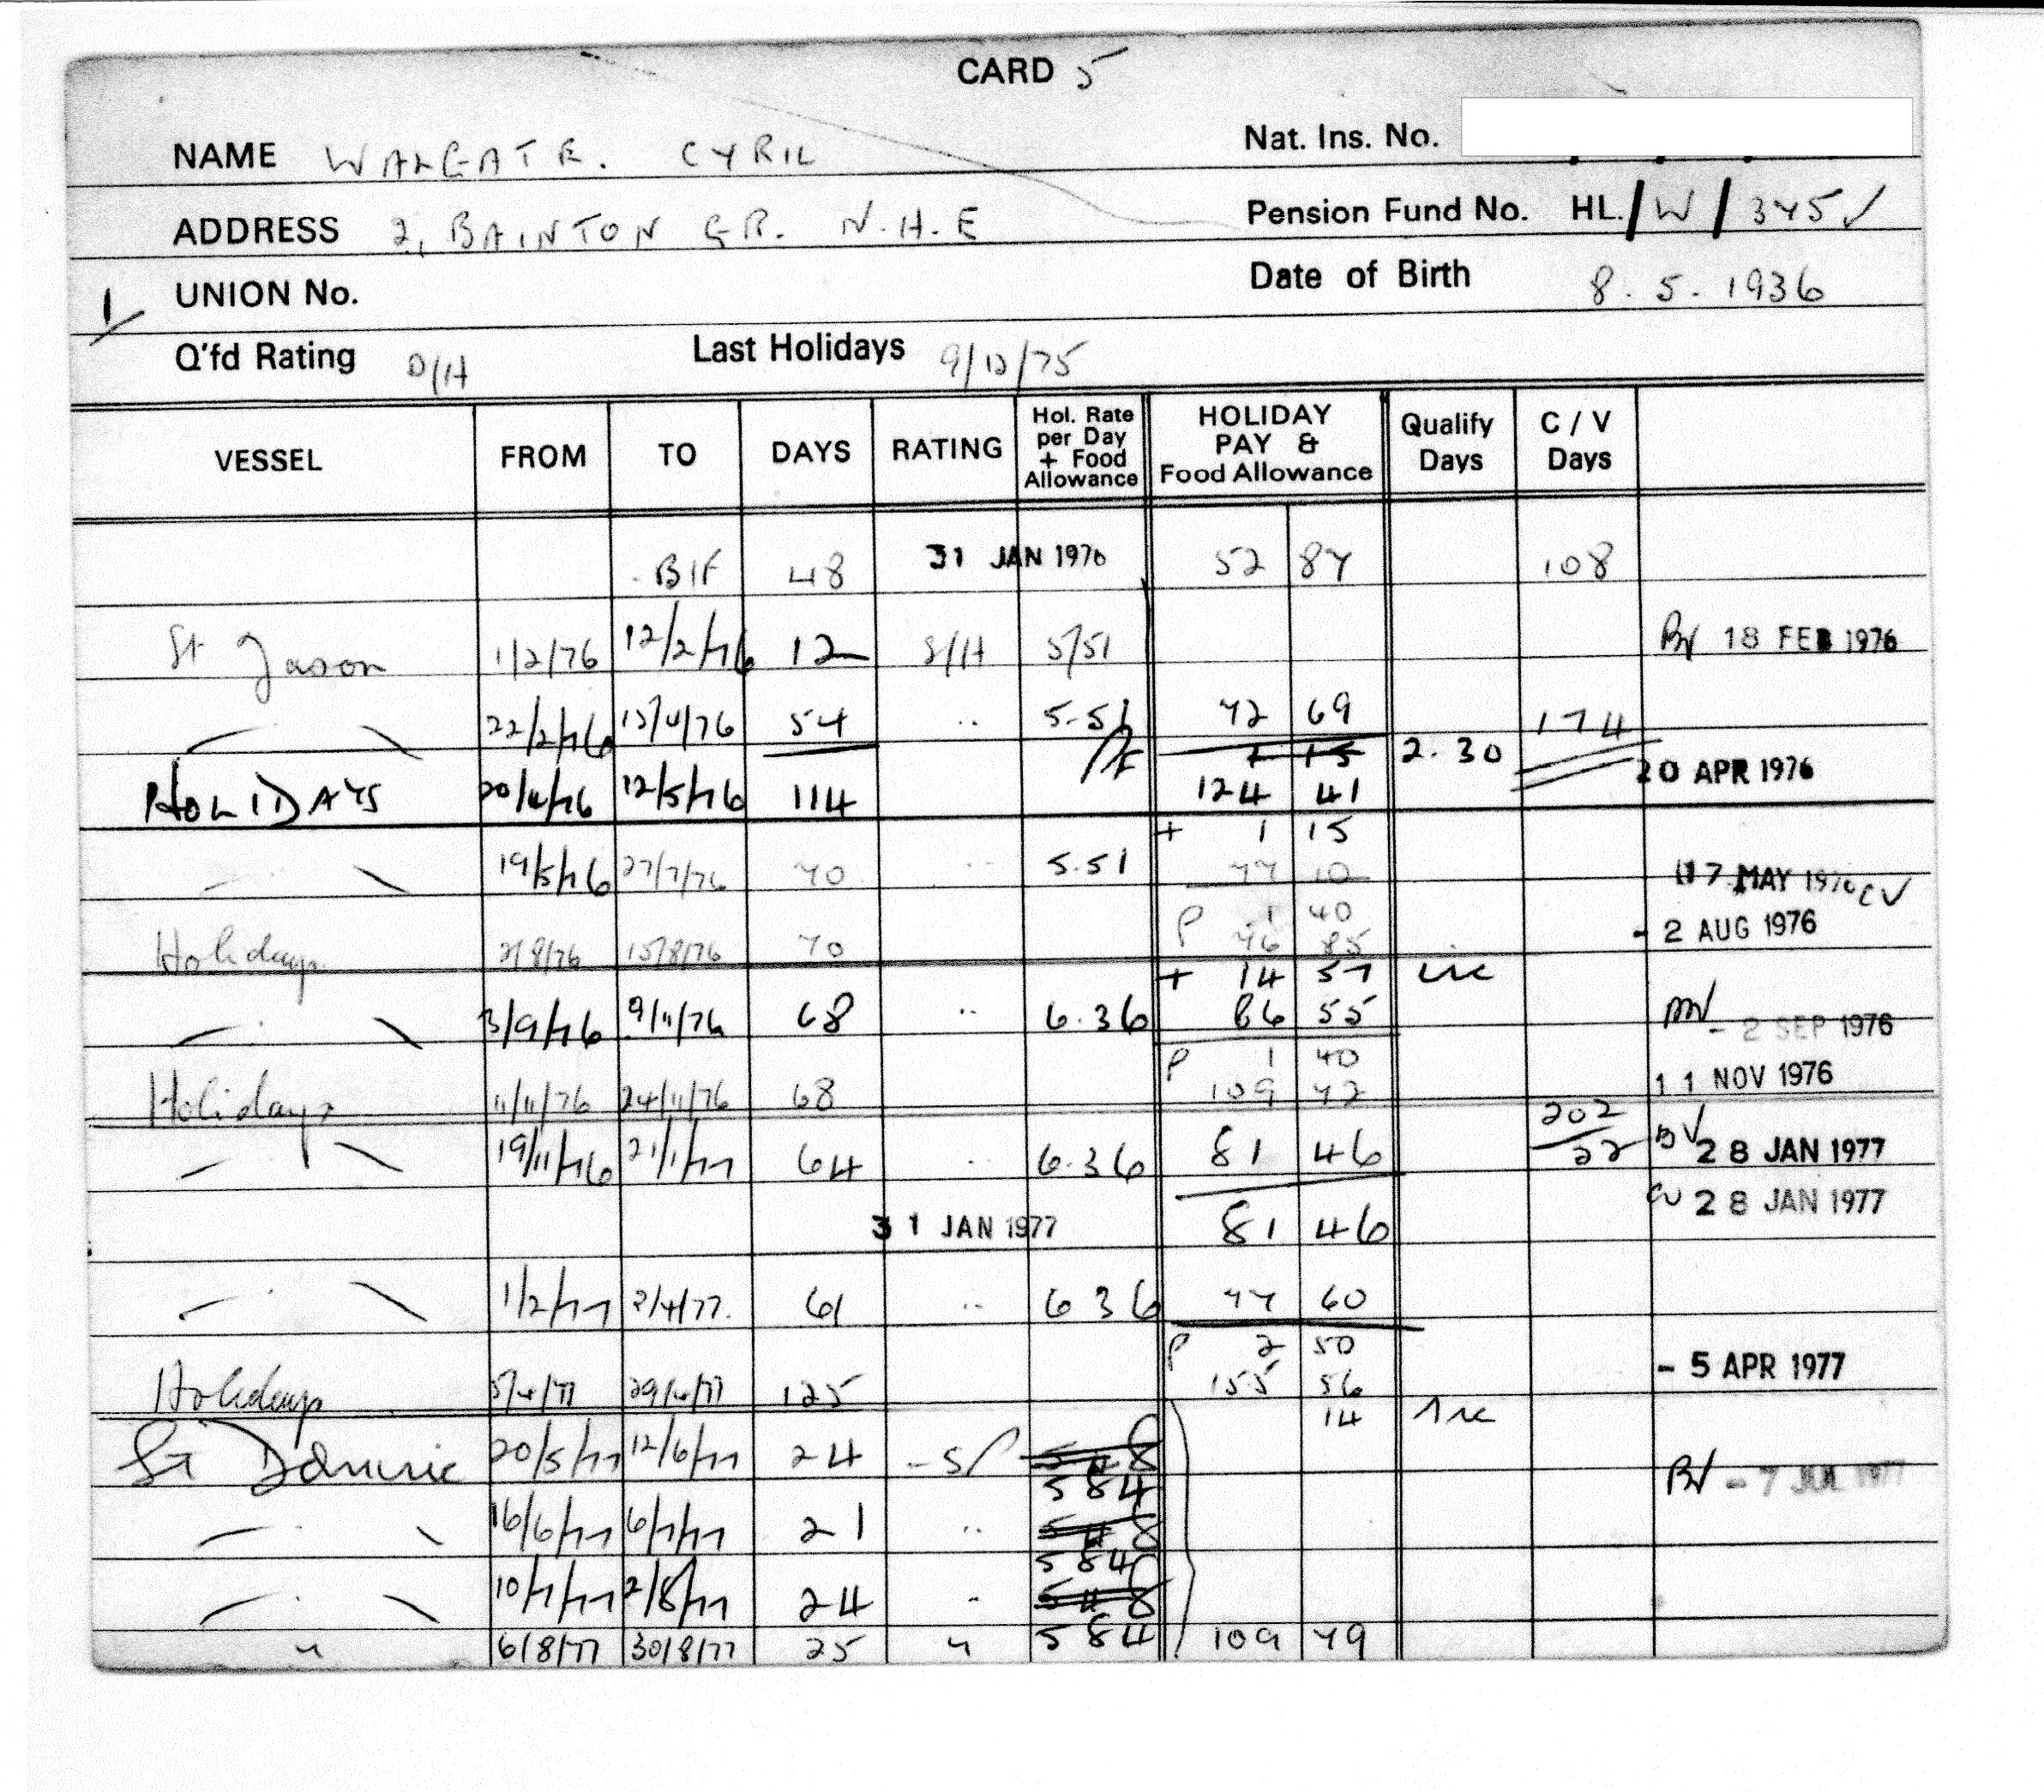 CARD 5
NAME WALGATE. CYRIL
Nat. Ins. No.
ADDRESS 2, BAINTON GR. N.H.E
Pension Fund No. HL./W/345
UNION No.
Date of Birth 8.5.1936
Q'fd Rating D/H Last Holidays 9/12/75
VESSEL FROM TO DAYS RATING Hol. Rate per Day + Food Allowance HOLIDAY PAY & Food Allowance Qualify Days C / V Days
B/F 48 31 JAN 1976 52 87 108
St Jason 1/2/76 12/2/76 12 S/H 5/51 18 FEB 1976
22/2/76 15/4/76 54 .. 5.51 72 69 174
1 15 2.30
HOLIDAYS 20/4/76 12/5/76 114 124 41 20 APR 1976
+ 1 15
19/5/76 27/7/76 70 .. 5.51 77 10 17 MAY 1976 CV
P 1 40
Holidays 2/8/76 15/8/76 70 76 85 - 2 AUG 1976
+ 14 57 inc
3/9/76 9/11/76 68 .. 6.36 86 55 - 2 SEP 1976
P 1 40
Holidays 11/11/76 24/11/76 68 109 72 11 NOV 1976
202
19/11/76 21/1/77 64 .. 6.36 81 46 22 BV 28 JAN 1977
CV 28 JAN 1977
31 JAN 1977 81 46
1/2/77 2/4/77. 61 .. 6 36 77 60
P 2 50
Holidays 5/4/77 29/4/77 125 155 56 - 5 APR 1977
14 inc
St Dominic 20/5/77 12/6/77 24 5 48 - 7 JUL 1977
5 84
16/6/77 6/7/77 21 .. 5 48
5 84
10/7/77 2/8/77 24 5 48
" 6/8/77 30/8/77 25 " 5 84 109 79